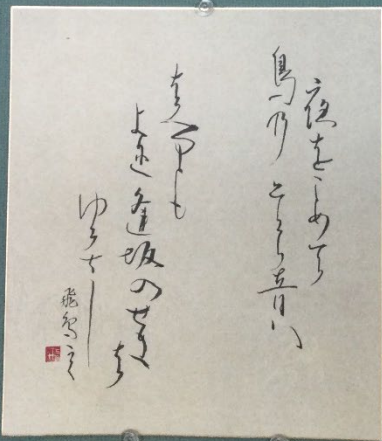 夜をこめて
鳥乃そら音ハ
はかるとも
よに逢坂のせきは
ゆるさし
飛鳥